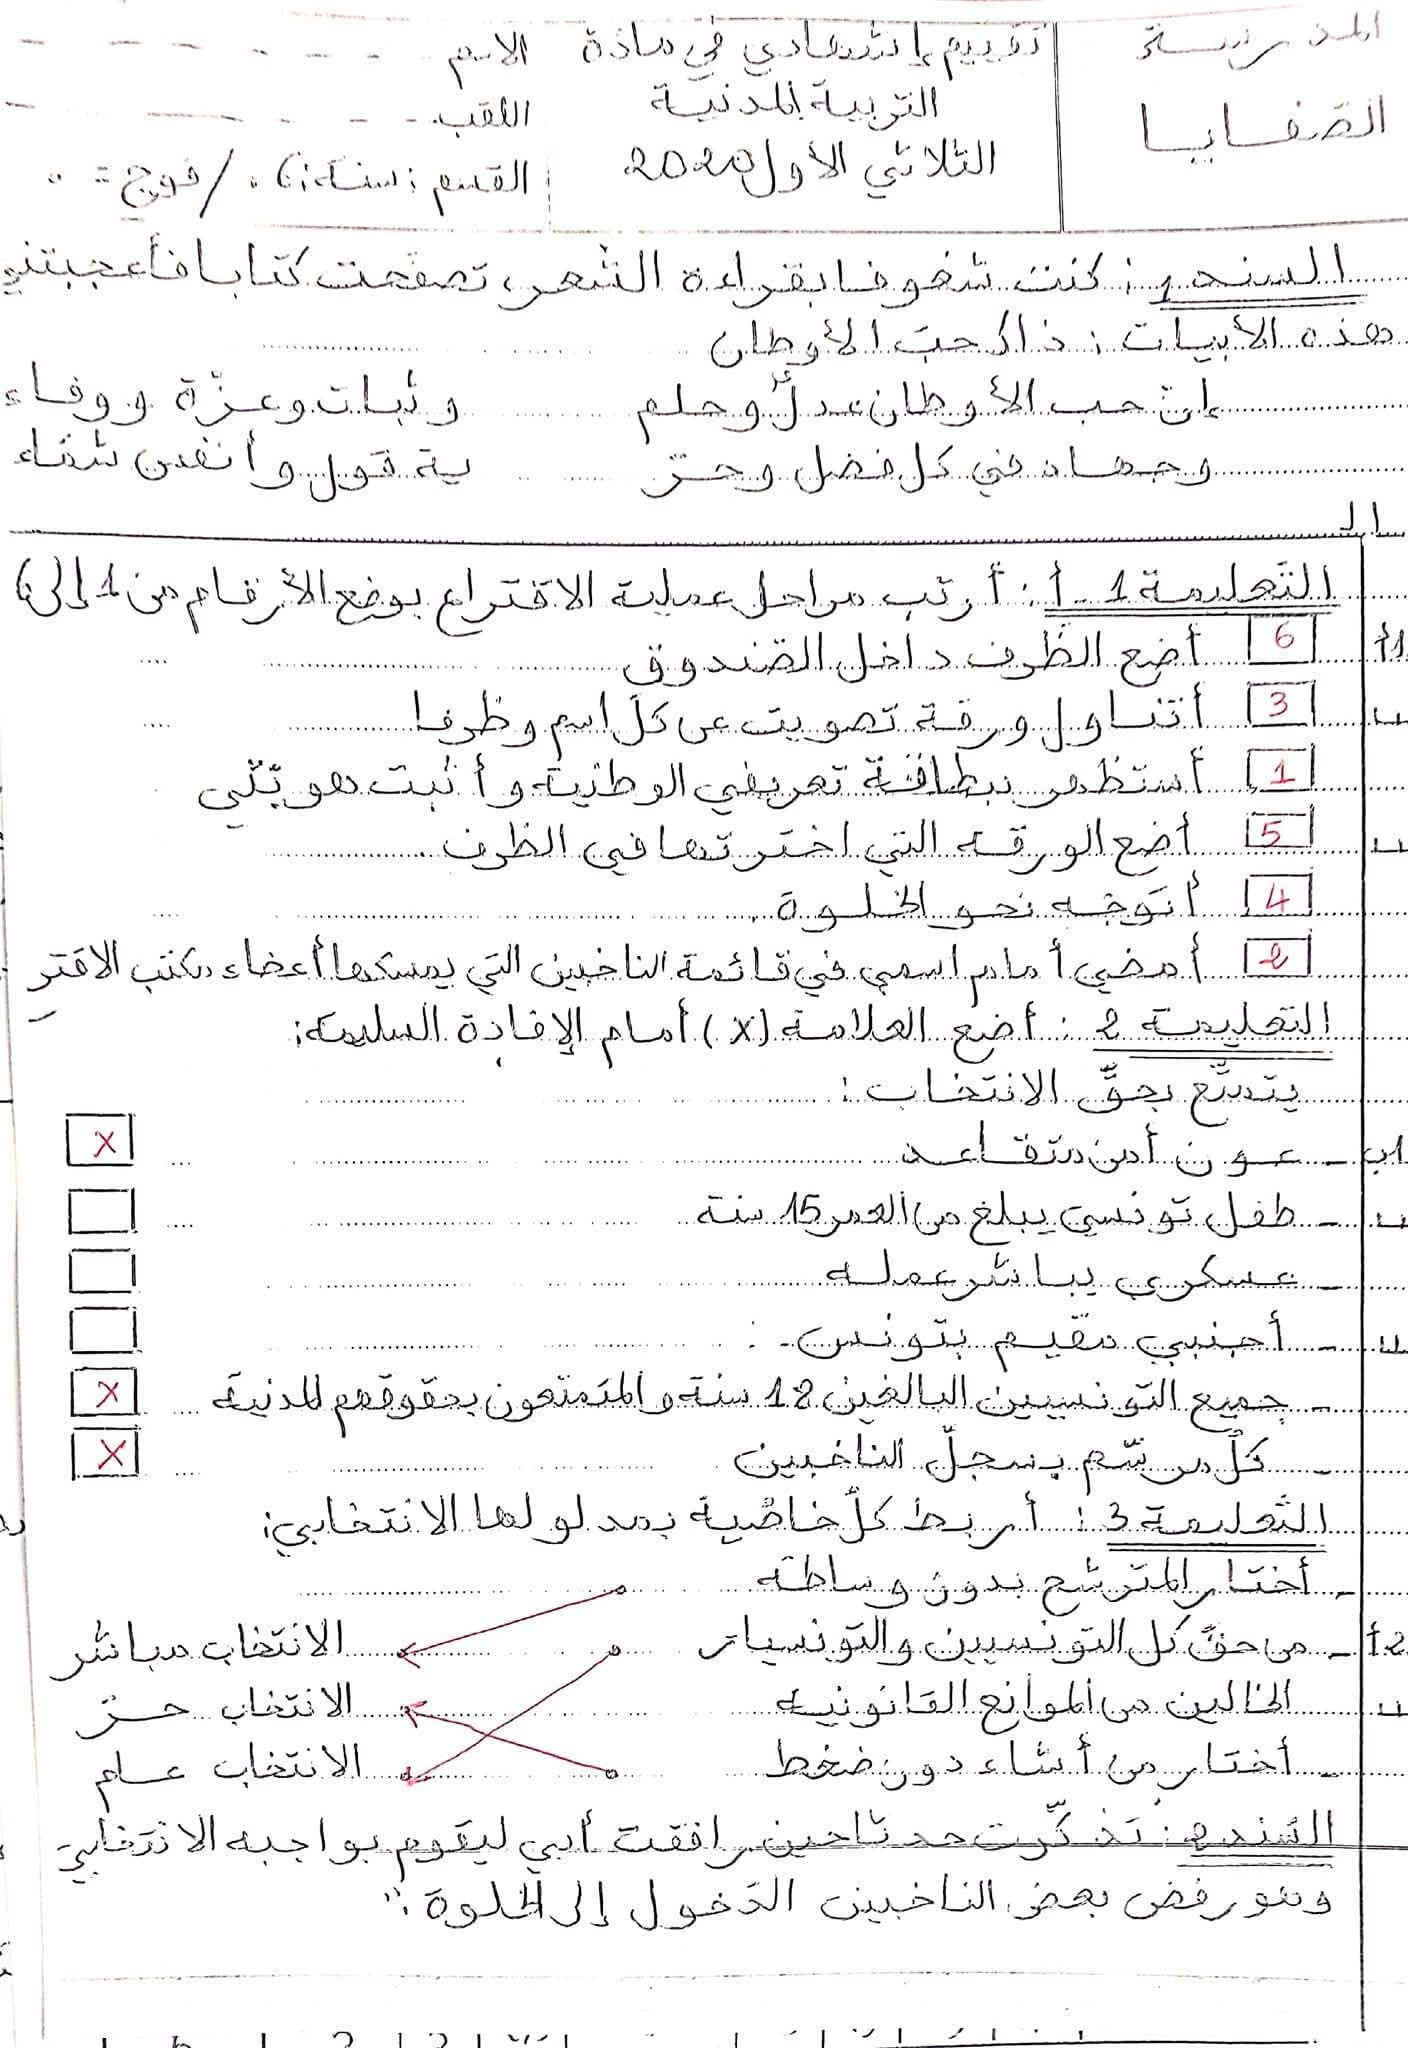 المدرسة
الصفايا
تقييم إشهادي في مادة
التربية المدنية
الثلاثي الأول 2020
الاسم
اللقب
القسم: سنة: 6 / فوج:
السند 1: كنت شغوفا بقراءة الشعر، تصفحت كتابا فأعجبتني
هذه الأبيات: ذاك حب الأوطان
إن حب الأوطان عدل وحلم وثبات وعزة ووفاء
وجهاد في كل فضل وحر ية قول وأنفس شماء
التعليمة 1 - أ: أرتب مراحل عملية الاقتراع بوضع الأرقام من 1 إلى 6
1أ 6 أضع الظرف داخل الصندوق
3 أتناول ورقة تصويت عن كل اسم وظرفا
1 أستظهر ببطاقة تعريفي الوطنية وأثبت هويتي
5 أضع الورقة التي اخترتها في الظرف.
4 أتوجه نحو الخلوة.
2 أمضي أمام اسمي في قائمة الناخبين التي يمسكها أعضاء مكتب الاقتر
التعليمة 2: أضع العلامة (x) أمام الإفادة السليمة:
يتمتع بحق الانتخاب:
1ب - عون أمن متقاعد x
- طفل تونسي يبلغ من العمر 15 سنة
- عسكري يباشر عمله
- أجنبي مقيم بتونس.
- جميع التونسيين البالغين 18 سنة والمتمتعون بحقوقهم المدنية x
- كل من رسم بسجل الناخبين x
التعليمة 3: أربط كل خاصية بمدلولها الانتخابي:
- أختار المترشح بدون وساطة
2أ - من حق كل التونسيين والتونسيات الانتخاب مباشر
الخالين من الموانع القانونية الانتخاب حر
- أختار من أشاء دون ضغط الانتخاب عام
السند 2: تذكرت حدثا حين رافقت أبي ليقوم بواجبه الانتخابي
وهو رفض بعض الناخبين الدخول إلى الخلوة."